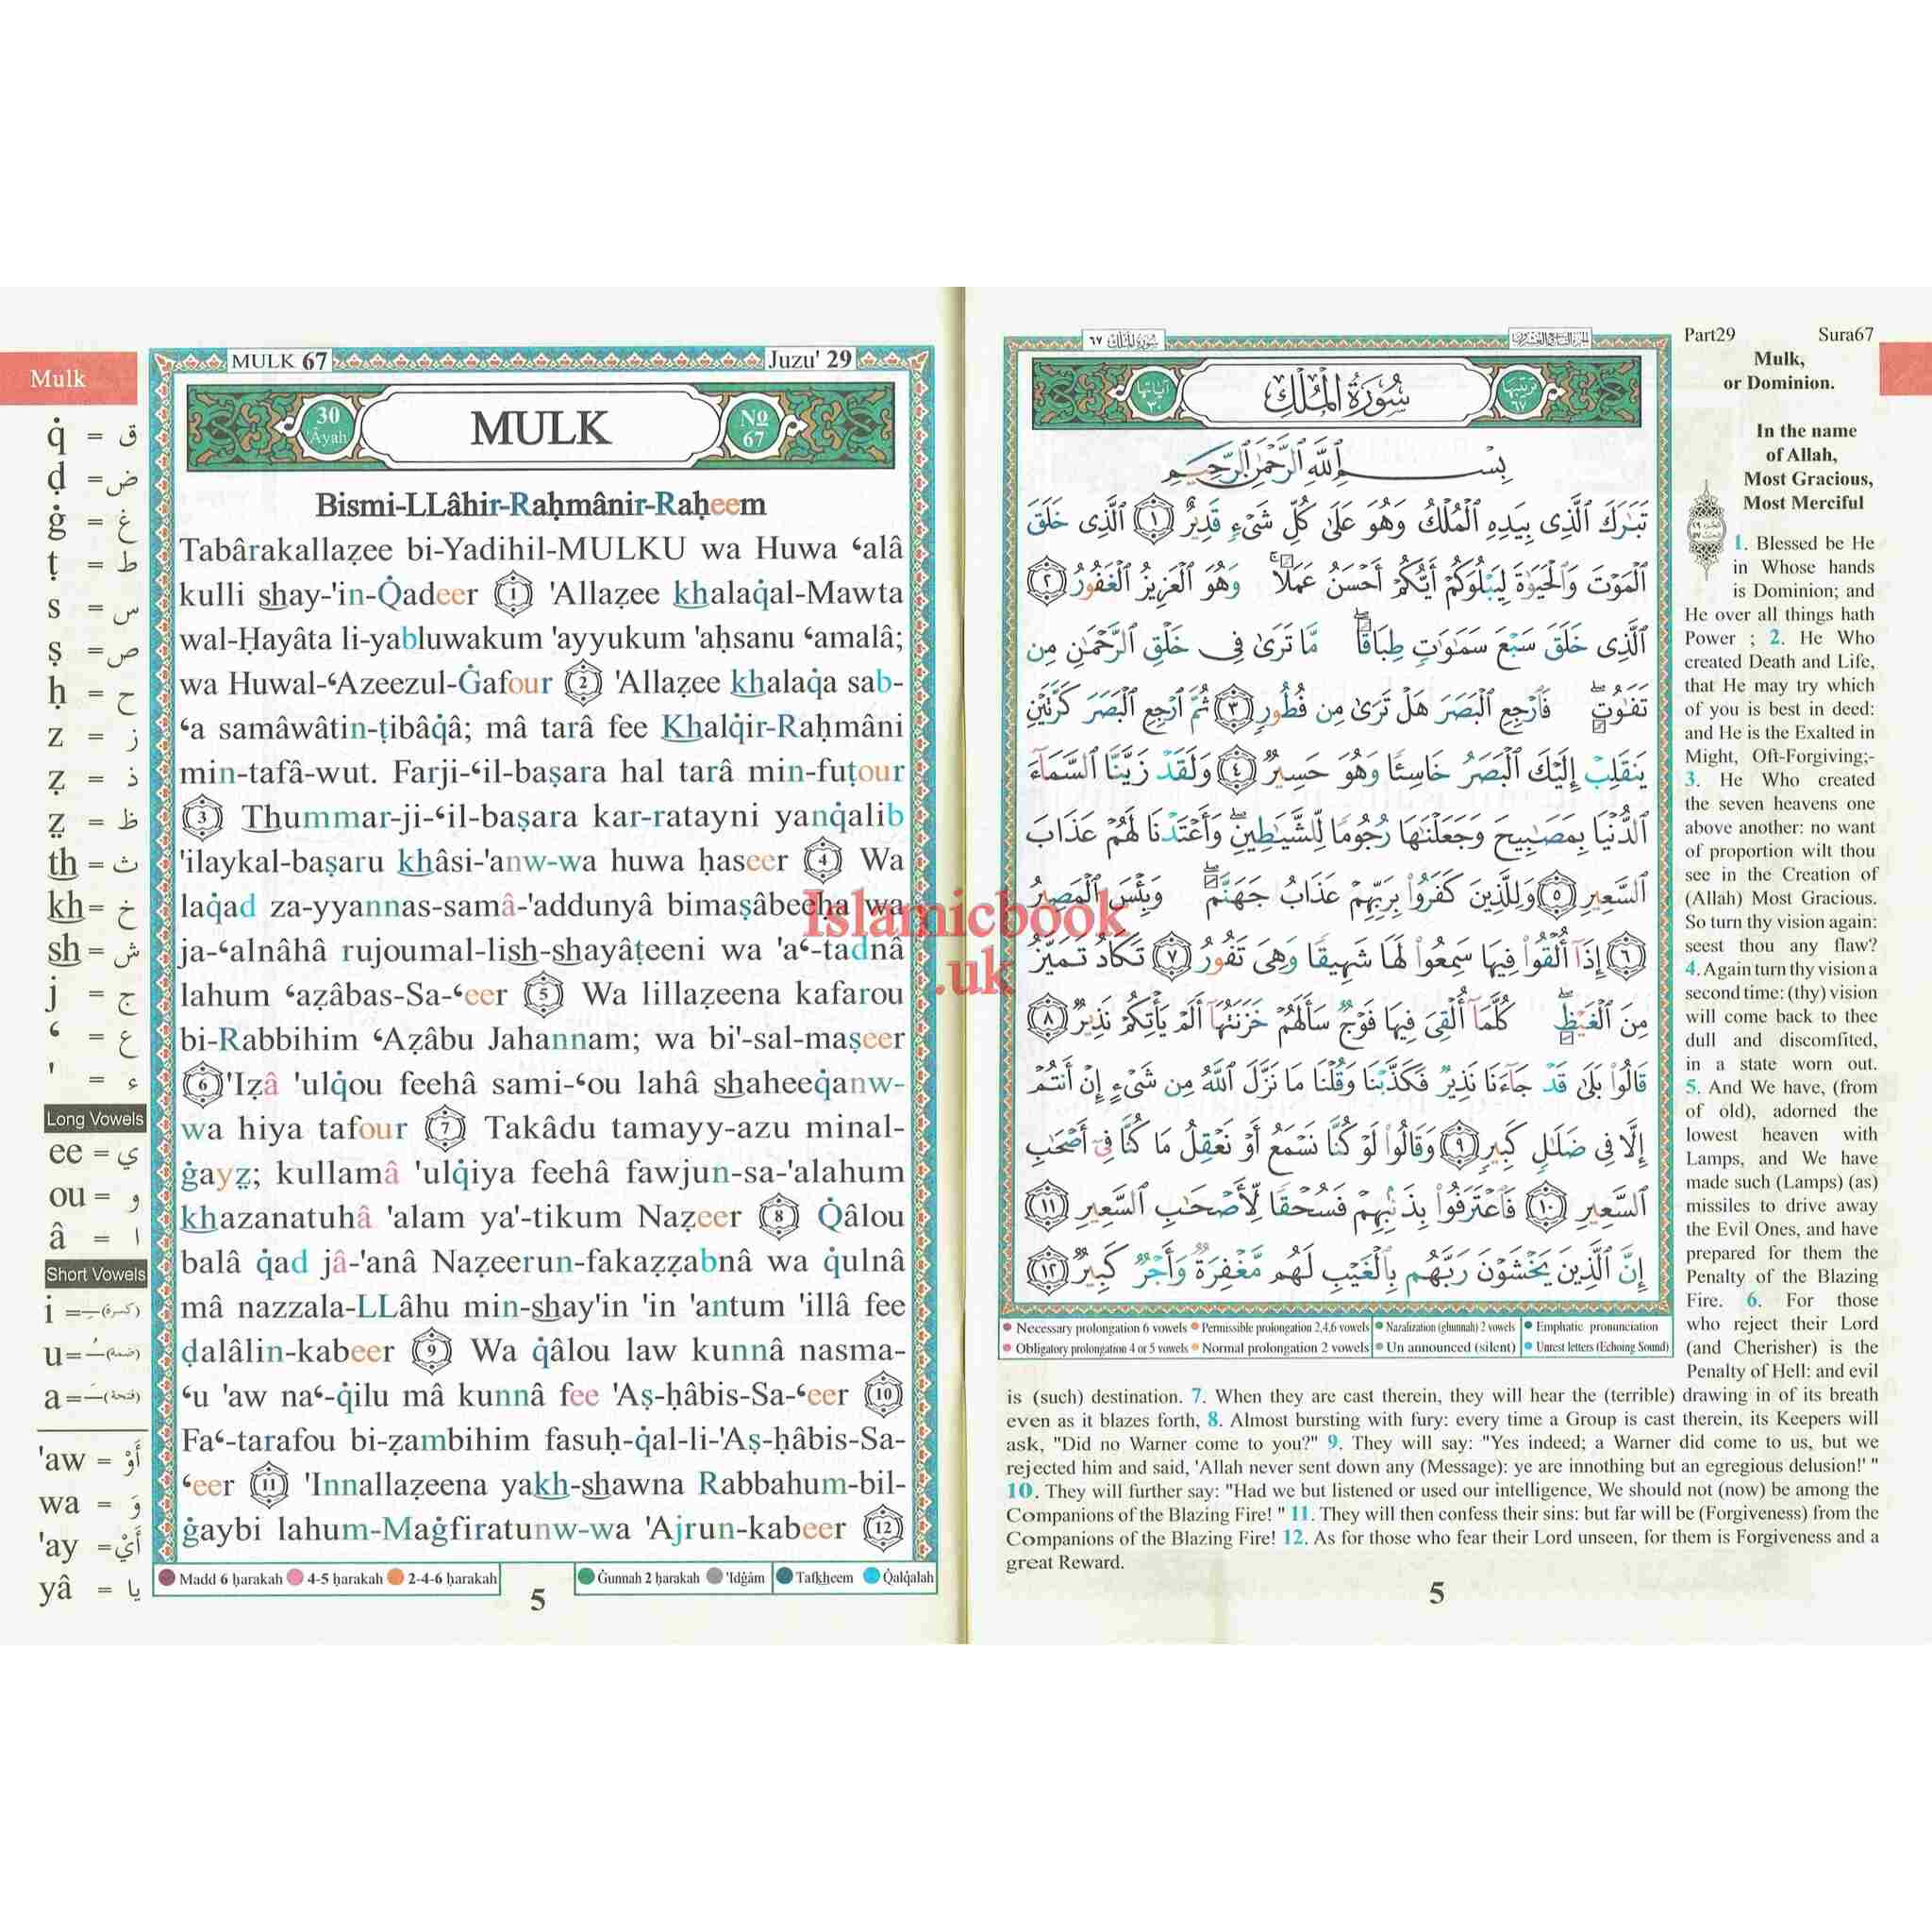 Mulk
q̇ = ق
ḍ = ض
ġ = غ
ṭ = ط
s = س
ṣ = ص
ḥ = ح
z = ز
ẓ = ذ
z̤ = ظ
th = ث
kh = خ
sh = ش
j = ج
ʻ = ع
' = ء
Long Vowels
ee = ي
ou = و
â = ا
Short Vowels
i = (كسرة)
u = (ضمة)
a = (فتحة)
'aw = أَوْ
wa = وَ
'ay = أَيْ
yâ = يا
MULK 67
Juzu' 29
30 'Âyah
MULK
No 67
Bismi-LLâhir-Raḥmânir-Raḥeem
Tabârakallaẓee bi-Yadihil-MULKU wa Huwa ʻalâ
kulli shay-'in-Q̇adeer 1 'Allaẓee khalaq̇al-Mawta
wal-Ḥayâta li-yabluwakum 'ayyukum 'aḥsanu ʻamalâ;
wa Huwal-ʻAzeezul-Ġafour 2 'Allaẓee khalaq̇a sab-
ʻa samâwâtin-ṭibâq̇â; mâ tarâ fee Khalq̇ir-Raḥmâni
min-tafâ-wut. Farji-ʻil-baṣara hal tarâ min-fuṭour
3 Thummar-ji-ʻil-baṣara kar-ratayni yanq̇alib
'ilaykal-baṣaru khâsi-'anw-wa huwa ḥaseer 4 Wa
laq̇ad za-yyannas-samâ-'addunyâ bimaṣâbeeḥa wa
ja-ʻalnâhâ rujoumal-lish-shayâṭeeni wa 'aʻ-tadnâ
lahum ʻaẓâbas-Sa-ʻeer 5 Wa lillaẓeena kafarou
bi-Rabbihim ʻAẓâbu Jahannam; wa bi'-sal-maṣeer
6 'Iẓâ 'ulq̇ou feehâ sami-ʻou lahâ shaheeq̇anw-
wa hiya tafour 7 Takâdu tamayy-azu minal-
ġayz̤; kullamâ 'ulq̇iya feehâ fawjun-sa-'alahum
khazanatuhâ 'alam ya'-tikum Naẓeer 8 Q̇âlou
balâ q̇ad jâ-'anâ Naẓeerun-fakaẓẓabnâ wa q̇ulnâ
mâ nazzala-LLâhu min-shay'in 'in 'antum 'illâ fee
ḍalâlin-kabeer 9 Wa q̇âlou law kunnâ nasma-
ʻu 'aw naʻ-q̇ilu mâ kunnâ fee 'Aṣ-ḥâbis-Sa-ʻeer 10
Faʻ-tarafou bi-ẓambihim fasuḥ-q̇al-li-'Aṣ-ḥâbis-Sa-
ʻeer 11 'Innallaẓeena yakh-shawna Rabbahum-bil-
ġaybi lahum-Maġfiratunw-wa 'Ajrun-kabeer 12
Madd 6 ḥarakah 4-5 ḥarakah 2-4-6 ḥarakah
Ġunnah 2 ḥarakah 'Idġâm Tafkheem Q̇alq̇alah
5
سُورَةُ المُلك ٦٧
الجزء التاسع والعشرون
آياتها ٣٠
سُورَةُ المُلْكِ
ترتيبها ٦٧
بِسْمِ اللَّهِ الرَّحْمَٰنِ الرَّحِيمِ
تَبَٰرَكَ ٱلَّذِى بِيَدِهِ ٱلْمُلْكُ وَهُوَ عَلَىٰ كُلِّ شَىْءٍ قَدِيرٌ ١ ٱلَّذِى خَلَقَ
ٱلْمَوْتَ وَٱلْحَيَوٰةَ لِيَبْلُوَكُمْ أَيُّكُمْ أَحْسَنُ عَمَلًا ۚ وَهُوَ ٱلْعَزِيزُ ٱلْغَفُورُ ٢
ٱلَّذِى خَلَقَ سَبْعَ سَمَٰوَٰتٍ طِبَاقًا ۖ مَّا تَرَىٰ فِى خَلْقِ ٱلرَّحْمَٰنِ مِن
تَفَٰوُتٍ ۖ فَٱرْجِعِ ٱلْبَصَرَ هَلْ تَرَىٰ مِن فُطُورٍ ٣ ثُمَّ ٱرْجِعِ ٱلْبَصَرَ كَرَّتَيْنِ
يَنقَلِبْ إِلَيْكَ ٱلْبَصَرُ خَاسِئًا وَهُوَ حَسِيرٌ ٤ وَلَقَدْ زَيَّنَّا ٱلسَّمَآءَ
ٱلدُّنْيَا بِمَصَٰبِيحَ وَجَعَلْنَٰهَا رُجُومًا لِّلشَّيَٰطِينِ ۖ وَأَعْتَدْنَا لَهُمْ عَذَابَ
ٱلسَّعِيرِ ٥ وَلِلَّذِينَ كَفَرُوا۟ بِرَبِّهِمْ عَذَابُ جَهَنَّمَ ۖ وَبِئْسَ ٱلْمَصِيرُ
٦ إِذَآ أُلْقُوا۟ فِيهَا سَمِعُوا۟ لَهَا شَهِيقًا وَهِىَ تَفُورُ ٧ تَكَادُ تَمَيَّزُ
مِنَ ٱلْغَيْظِ ۖ كُلَّمَآ أُلْقِىَ فِيهَا فَوْجٌ سَأَلَهُمْ خَزَنَتُهَآ أَلَمْ يَأْتِكُمْ نَذِيرٌ ٨
قَالُوا۟ بَلَىٰ قَدْ جَآءَنَا نَذِيرٌ فَكَذَّبْنَا وَقُلْنَا مَا نَزَّلَ ٱللَّهُ مِن شَىْءٍ إِنْ أَنتُمْ
إِلَّا فِى ضَلَٰلٍ كَبِيرٍ ٩ وَقَالُوا۟ لَوْ كُنَّا نَسْمَعُ أَوْ نَعْقِلُ مَا كُنَّا فِىٓ أَصْحَٰبِ
ٱلسَّعِيرِ ١٠ فَٱعْتَرَفُوا۟ بِذَنۢبِهِمْ فَسُحْقًا لِّأَصْحَٰبِ ٱلسَّعِيرِ ١١
إِنَّ ٱلَّذِينَ يَخْشَوْنَ رَبَّهُم بِٱلْغَيْبِ لَهُم مَّغْفِرَةٌ وَأَجْرٌ كَبِيرٌ ١٢
Necessary prolongation 6 vowels Permissible prolongation 2,4,6 vowels Nazalization (ghunnah) 2 vowels Emphatic pronunciation
Obligatory prolongation 4 or 5 vowels Normal prolongation 2 vowels Un announced (silent) Unrest letters (Echoing Sound)
Part29 Sura67
Mulk,
or Dominion.
In the name
of Allah,
Most Gracious,
Most Merciful
1. Blessed be He
in Whose hands
is Dominion; and
He over all things hath
Power ; 2. He Who
created Death and Life,
that He may try which
of you is best in deed:
and He is the Exalted in
Might, Oft-Forgiving;-
3. He Who created
the seven heavens one
above another: no want
of proportion wilt thou
see in the Creation of
(Allah) Most Gracious.
So turn thy vision again:
seest thou any flaw?
4. Again turn thy vision a
second time: (thy) vision
will come back to thee
dull and discomfited,
in a state worn out.
5. And We have, (from
of old), adorned the
lowest heaven with
Lamps, and We have
made such (Lamps) (as)
missiles to drive away
the Evil Ones, and have
prepared for them the
Penalty of the Blazing
Fire. 6. For those
who reject their Lord
(and Cherisher) is the
Penalty of Hell: and evil
is (such) destination. 7. When they are cast therein, they will hear the (terrible) drawing in of its breath
even as it blazes forth, 8. Almost bursting with fury: every time a Group is cast therein, its Keepers will
ask, "Did no Warner come to you?" 9. They will say: "Yes indeed; a Warner did come to us, but we
rejected him and said, 'Allah never sent down any (Message): ye are innothing but an egregious delusion!' "
10. They will further say: "Had we but listened or used our intelligence, We should not (now) be among the
Companions of the Blazing Fire! " 11. They will then confess their sins: but far will be (Forgiveness) from the
Companions of the Blazing Fire! 12. As for those who fear their Lord unseen, for them is Forgiveness and a
great Reward.
5
Islamicbook
.uk